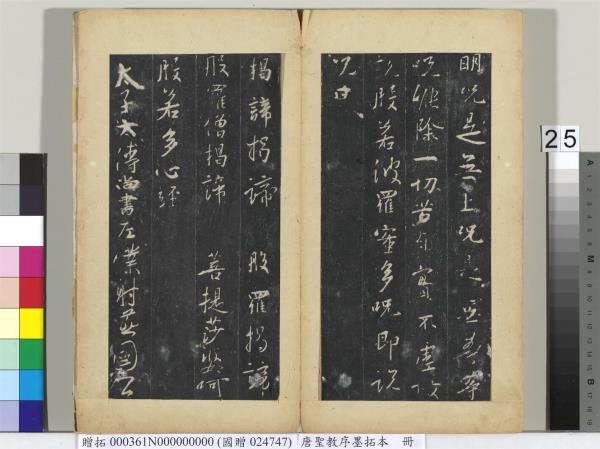 明咒是无上咒是无等等
咒能除一切苦真實不虛故
說般若波羅蜜多咒即說
咒曰
揭諦揭諦 般羅揭諦
般羅僧揭諦 菩提莎婆呵
般若多心經
太子太傅尚書左僕射燕國公
25
贈拓 000361N000000000 (國贈 024747) 唐聖教序墨拓本 冊